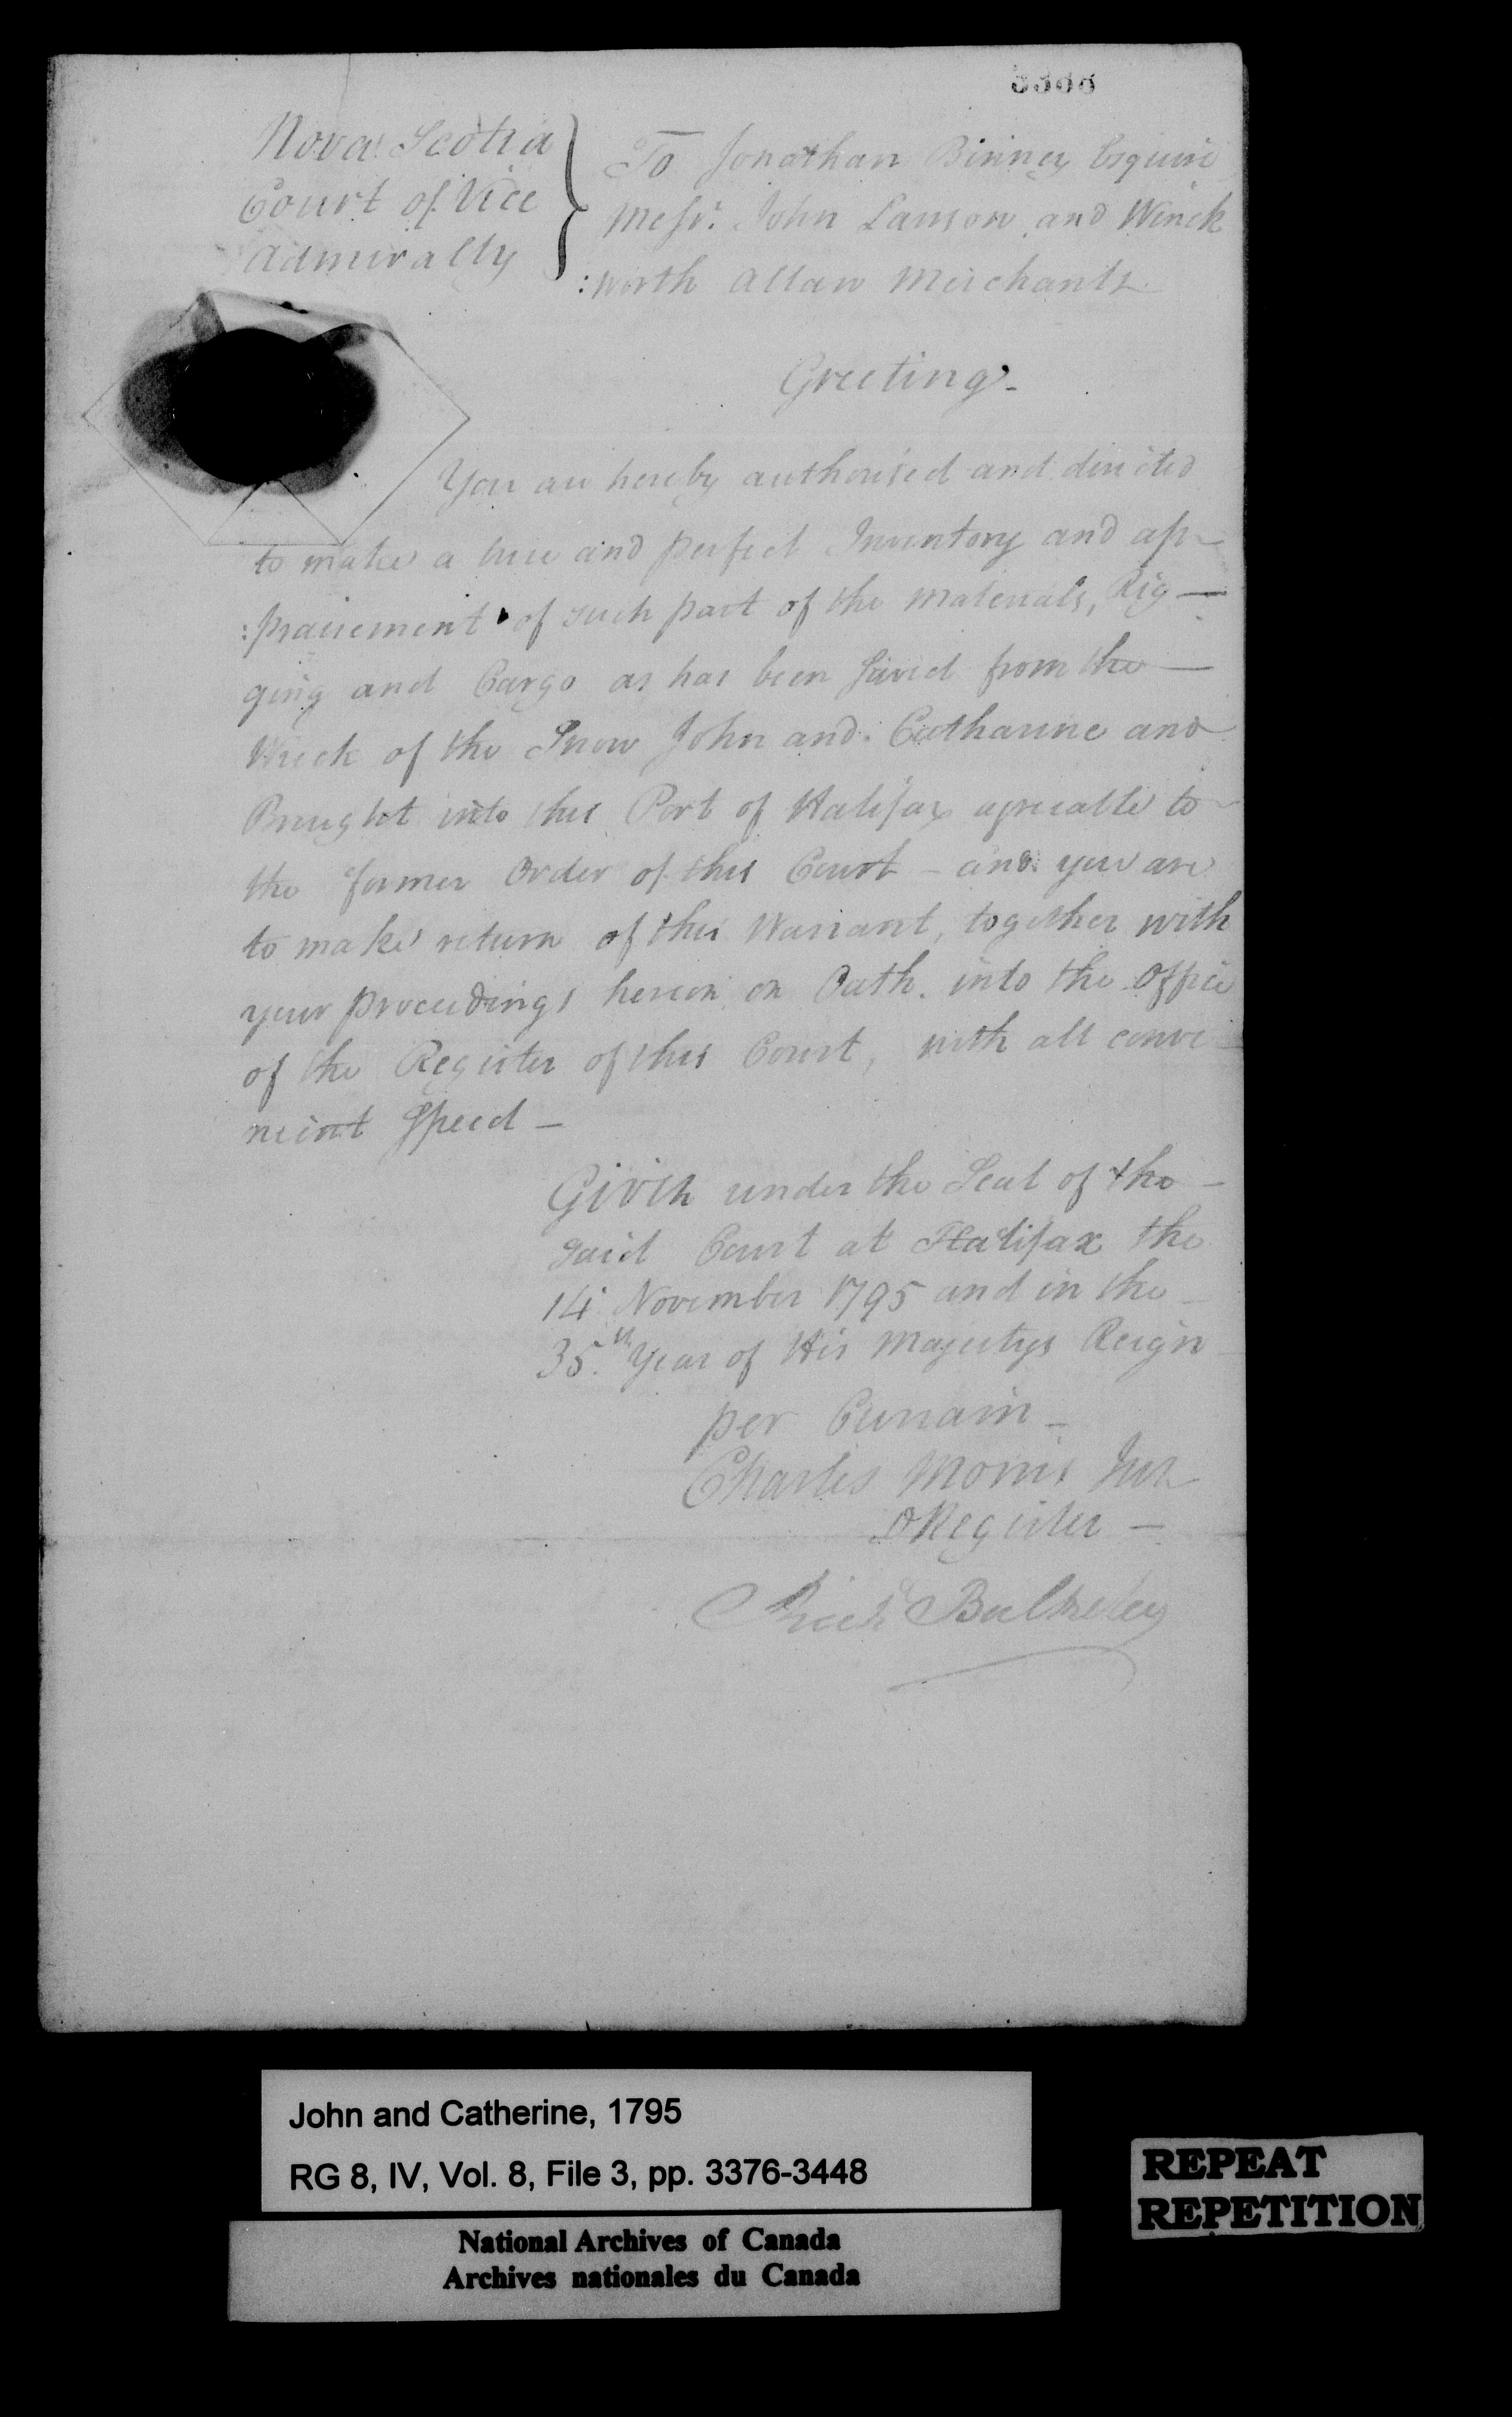 Nova Scotia
Court of Vice
Admiralty
To Jonathan Binney Esquire
Messrs. John Lawson and Winck
:worth Allan Merchants
Greeting -
You are hereby authorised and directed
to make a true and perfect Inventory and ap-
:praisement of such part of the Materials, Rig-
ging and Cargo as has been saved from the
Wreck of the Snow John and Catharine and
Brought into this Port of Halifax agreeable to
the former Order of this Court - and you are
to make return of this Warrant, together with
your proceedings hereon on Oath. into the Office
of the Register of this Court, with all conve-
neint Speed -
Given under the Seal of the
said Court at Halifax the
14 November 1795 and in the
35.th Year of His Majestys Reign
per Curiam -
Charles Morris Junr
DRegister -
Richd Bulkeley
John and Catherine, 1795
RG 8, IV, Vol. 8, File 3, pp. 3376-3448
National Archives of Canada
Archives nationales du Canada
REPEAT
REPETITION